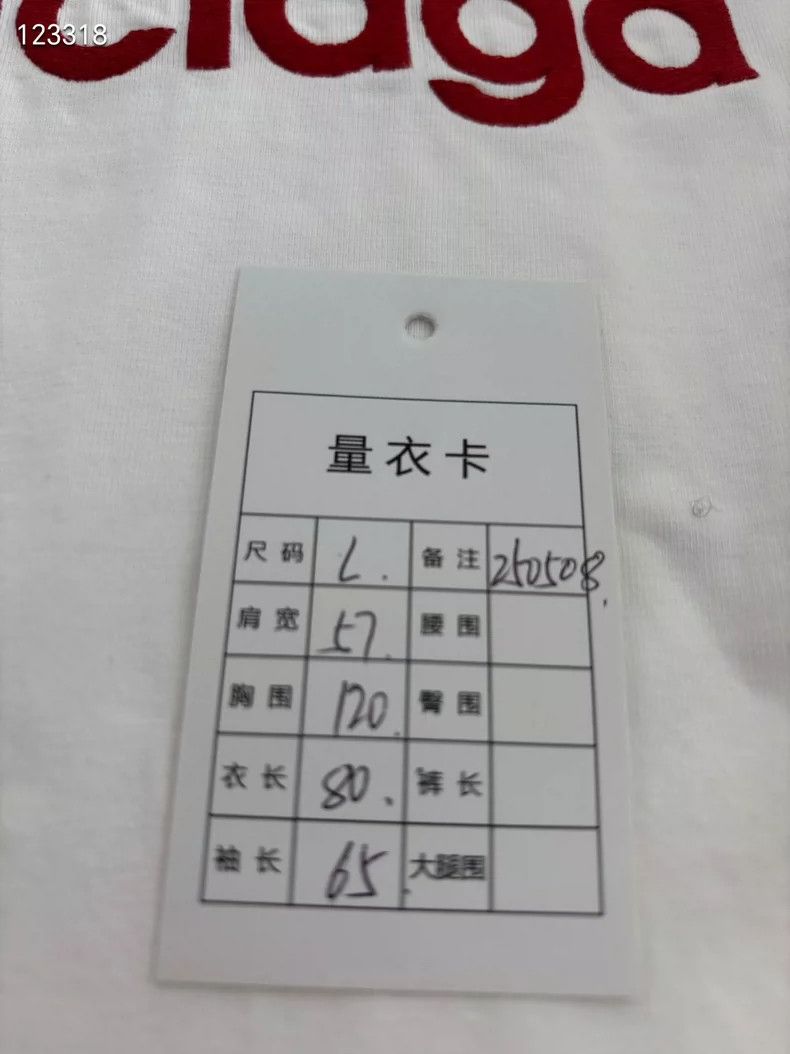 123318
ciaga
量衣卡
尺码 L. 备注 250508.
肩宽 57. 腰围
胸围 120. 臀围
衣长 80. 裤长
袖长 65. 大腿围